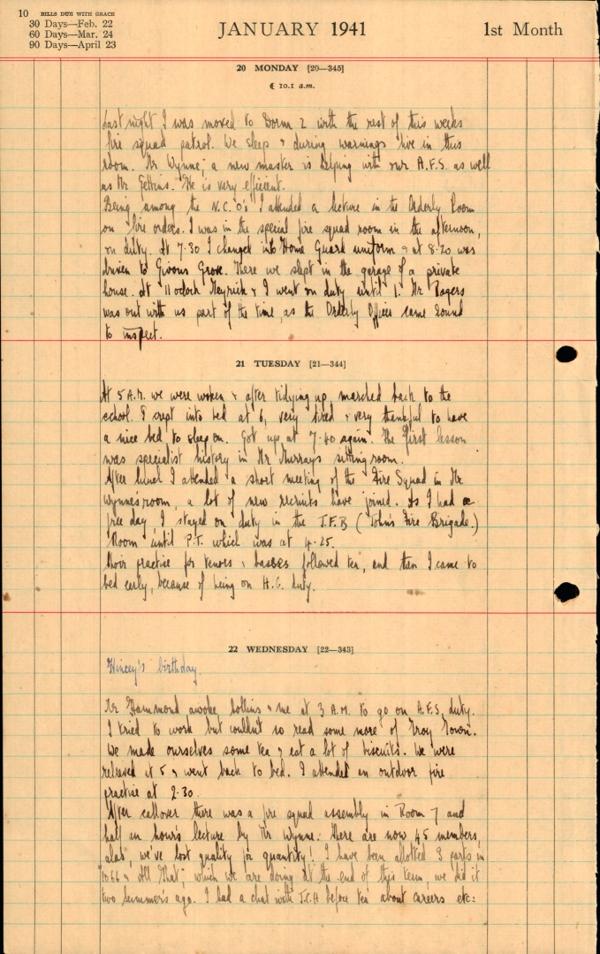 10 BILLS DUE WITH GRACE
30 Days—Feb. 22
60 Days—Mar. 24
90 Days—April 23
JANUARY 1941
1st Month
20 MONDAY [20—345]
☾ 10.1 a.m.
Last night I was moved to Dorm 2 with the rest of this weeks
fire squad patrol. We sleep & during warnings live in this
room. Mr Wynne, a new master is helping with our A.F.S. as well
as Mr. He is very efficient.
Being among the N.C.O's I attended a lecture in the Orderly Room
on fire orders. I was in the special fire squad room in the afternoon,
on duty. At 7-30 I changed into Home Guard uniform & at 8-20 was
driven to Givons Grove. There we slept in the garage of a private
house. At 11 oclock Heyrick & I went on duty until 1. Mr Rogers
was out with us part of the time, as the Orderly Officer came round
to inspect.
21 TUESDAY [21—344]
At 5 A.M. we were woken & after tidying up marched back to the
school. I crept into bed at 6, very tired & very thankful to have
a nice bed to sleep on. Got up at 7-40 again. The first lesson
was specialist history in Mr Murrays sitting room.
After lunch I attended a short meeting of the Fire Squad in Mr
Wynnes room, a lot of new recruits have joined. As I had a
free day I stayed on duty in the J.F.B (Johns Fire Brigade.)
Room until P.T. which was at 4-25.
Choir practise for tenors & basses followed tea, and then I came to
bed early, because of being on H.G. duty.
22 WEDNESDAY [22—343]
birthday
Mr Hammond awoke Collins & me at 3 A.M. to go on A.F.S. duty.
I tried to work but couldn't so read some more of Troy Town.
We made ourselves some tea & eat a lot of biscuits. We were
released at 5 & went back to bed. I attended an outdoor fire
practise at 2-30.
After callover there was a fire squad assembly in Room 7 and
half an hour's lecture by Mr Wynne. There are now 45 members,
alas, we've lost quality for quantity! I have been allotted 3 parts in
"1066 & All That", which we are doing at the end of this term, we did it
two summer's ago. I had a chat with before tea about careers etc: